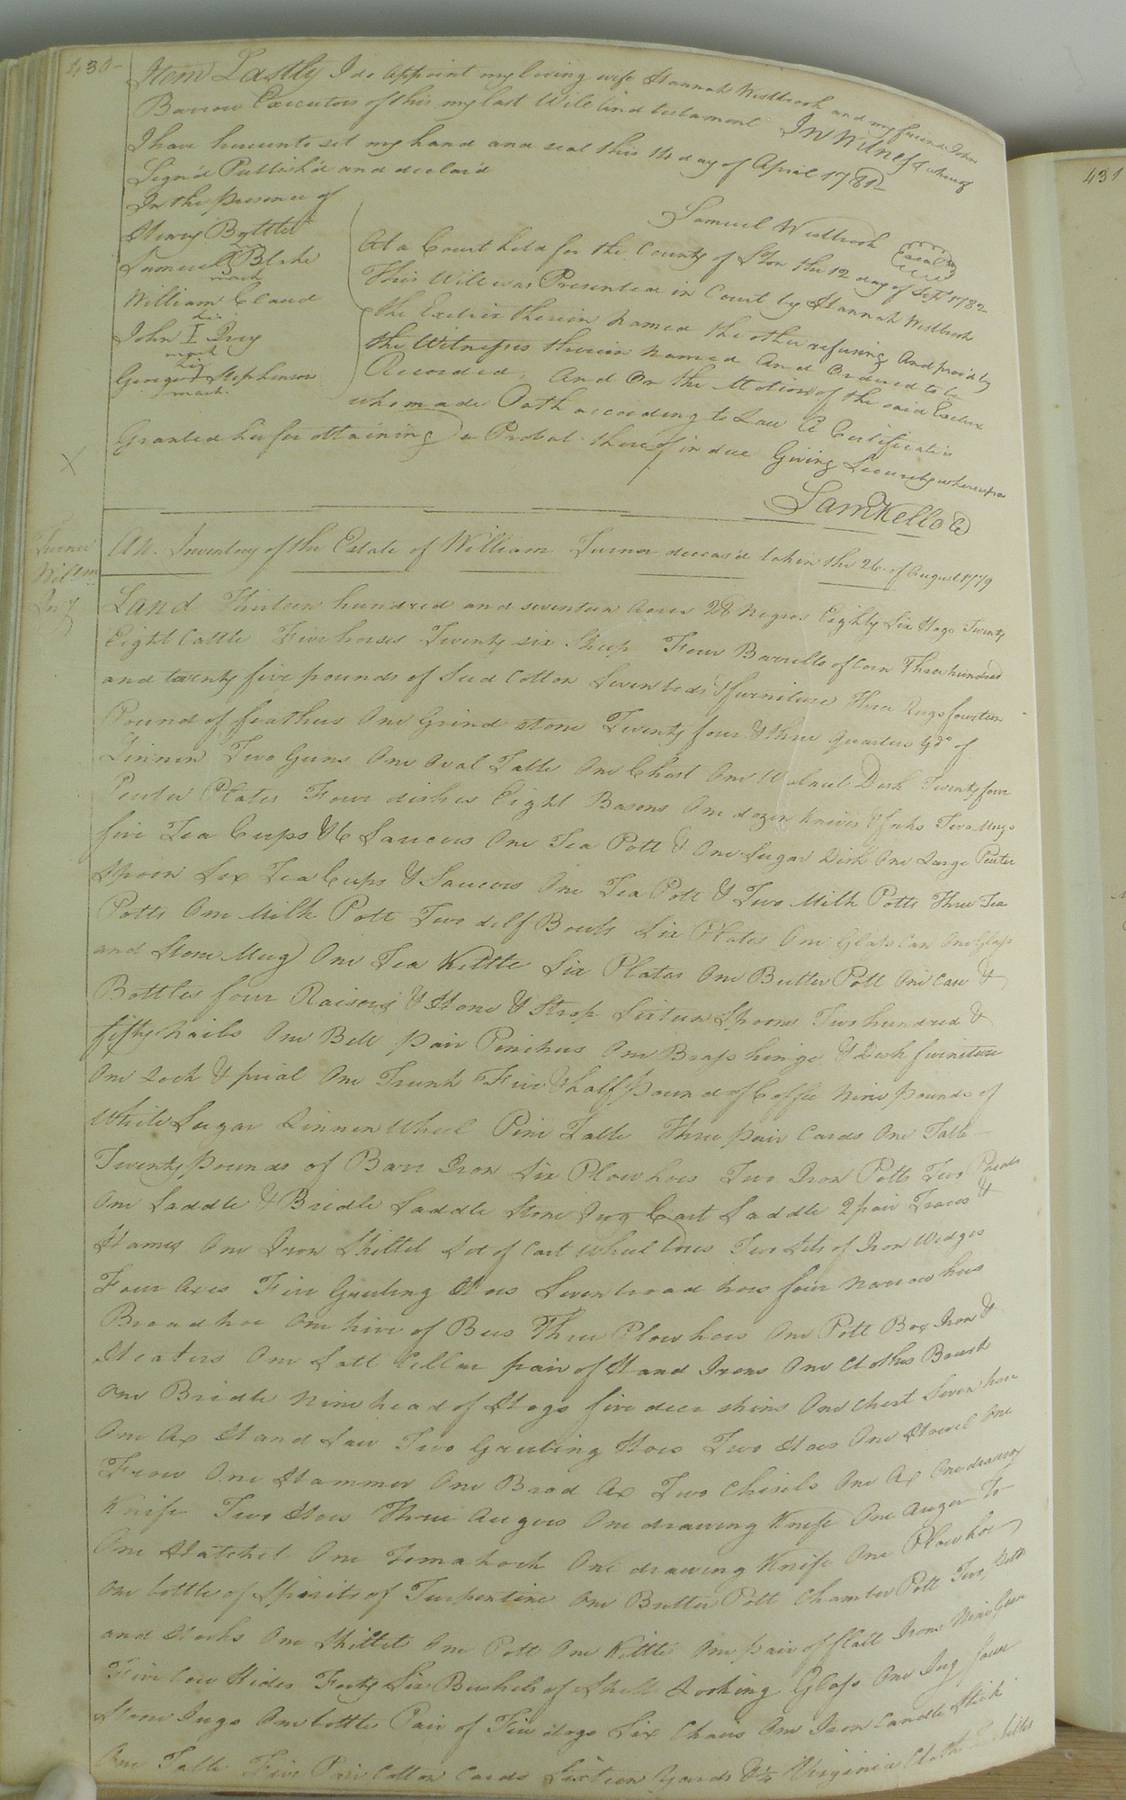 430
Item Lastly I do Appoint my loving wife Hannah Westbrook and my friend John
Barrow Executors of this my last Will and testament In Witness whereof
I have hereunto set my hand and seal this day of April 178
Sign'd Publish'd and declar'd
In the presence of
Henry
Samuel Blake
mark
William Claud
his
John I
mark
his
George Stephenson
mark
Samuel Westbrook Seal
At a Court held for the County of Ston the 12 day of Sept 1782
This Will was Presented in Court by Hannah Westbrook
the Exetrix therein named the other refusing And prov'd by
the Witnesses therein named And Ordered to be
Recorded. And On the Motion of the said Exetrix
who made Oath according to Law a Certificate is
Granted her for obtaining a Probat thereof in due Giving Security whereupon
X
Sam Kello C
Turner
Willm
Invy
An Inventory of the Estate of William Turner deceas'd taken the 26 of August 1779
Land Thirteen hundred and seventeen Acres 28 Negroes Eighty Six Hogs Twenty
Eight Cattle Five horses Twenty six Sheep Four Barrells of Corn Three hundred
and twenty five pounds of Seed Cotton Seven beds & furniture Three Rugs fourteen
Pound of feathers One Grind stone Twenty four & three quarters Yds of
Linnen Two Guns One Oval Table One Chest One Walnut Desk Twenty four
Peuter Plates Four dishes Eight Basons One dozen knives & forks Two Mugs
five Tea Cups & 6 Saucers One Tea Pott & One Sugar Dish One Large Peuter
Spoon Six Tea Cups & Saucers One Tea Pott & Two Milk Potts Three Tea
Potts One Milk Pott Two delf Bowls Six Plates One Glass Can One Glass
and Stone Mug One Tea Kettle Six Plates One Butter Pott One Case &
Bottles four Raisors & Hone & Strop Sixteen Spoons Two hundred &
fifty nails One Bell pair Pinchers One Brass hinge & Desk furniture
One Lock & One Trunk Five & half pound of Coffee Nine pounds of
White Sugar Linnen Wheel Pine Table Three pair Cards One Table
Twenty pounds of Barr Iron Six Plow hoes Two Iron Potts Two
One Saddle & Bridle Saddle Stone Jug Cart Saddle 2 pair Traces &
Hames One Iron Skillet Set of Cart Wheel Tires Two Sets of Iron Wedges
Four Axes Five Grubing Hoes Seven broad hoes four Narrow hoes
Broad hoe One hive of Bees Three Plow hoes One Pott Box Iron &
Heaters One Salt Cellar pair of Hand Irons One Clothes Brush
One Bridle Nine head of Hogs five deer skins One Chest Seven hoes
One Ax Hand Saw Two Grubing Hoes Two Hoes One Shovel One
Frow One Hammer One Broad Ax Two Chisels One Ax One drawing
Knife Two Hoes Three Augers One drawing Knife One Auger To
One Hatchet One Tomahock One drawing Knife One Plow hoe
One bottle of Spirits of Turpentine One Butter Pott Chamber Pott Two Potts
and Hooks One Skillet One Pott One Kittle One pair of flatt Irons Nine Geese
Five Cow Hides Forty Six Bushels of Shell Looking Glass One Jug four
Stone Jugs One bottle Pair of Fire dogs Six Chairs One Iron Candle Stick
One Table Five Pair Cotton Cards Sixteen Yards & ½ Virginia Cloth
431